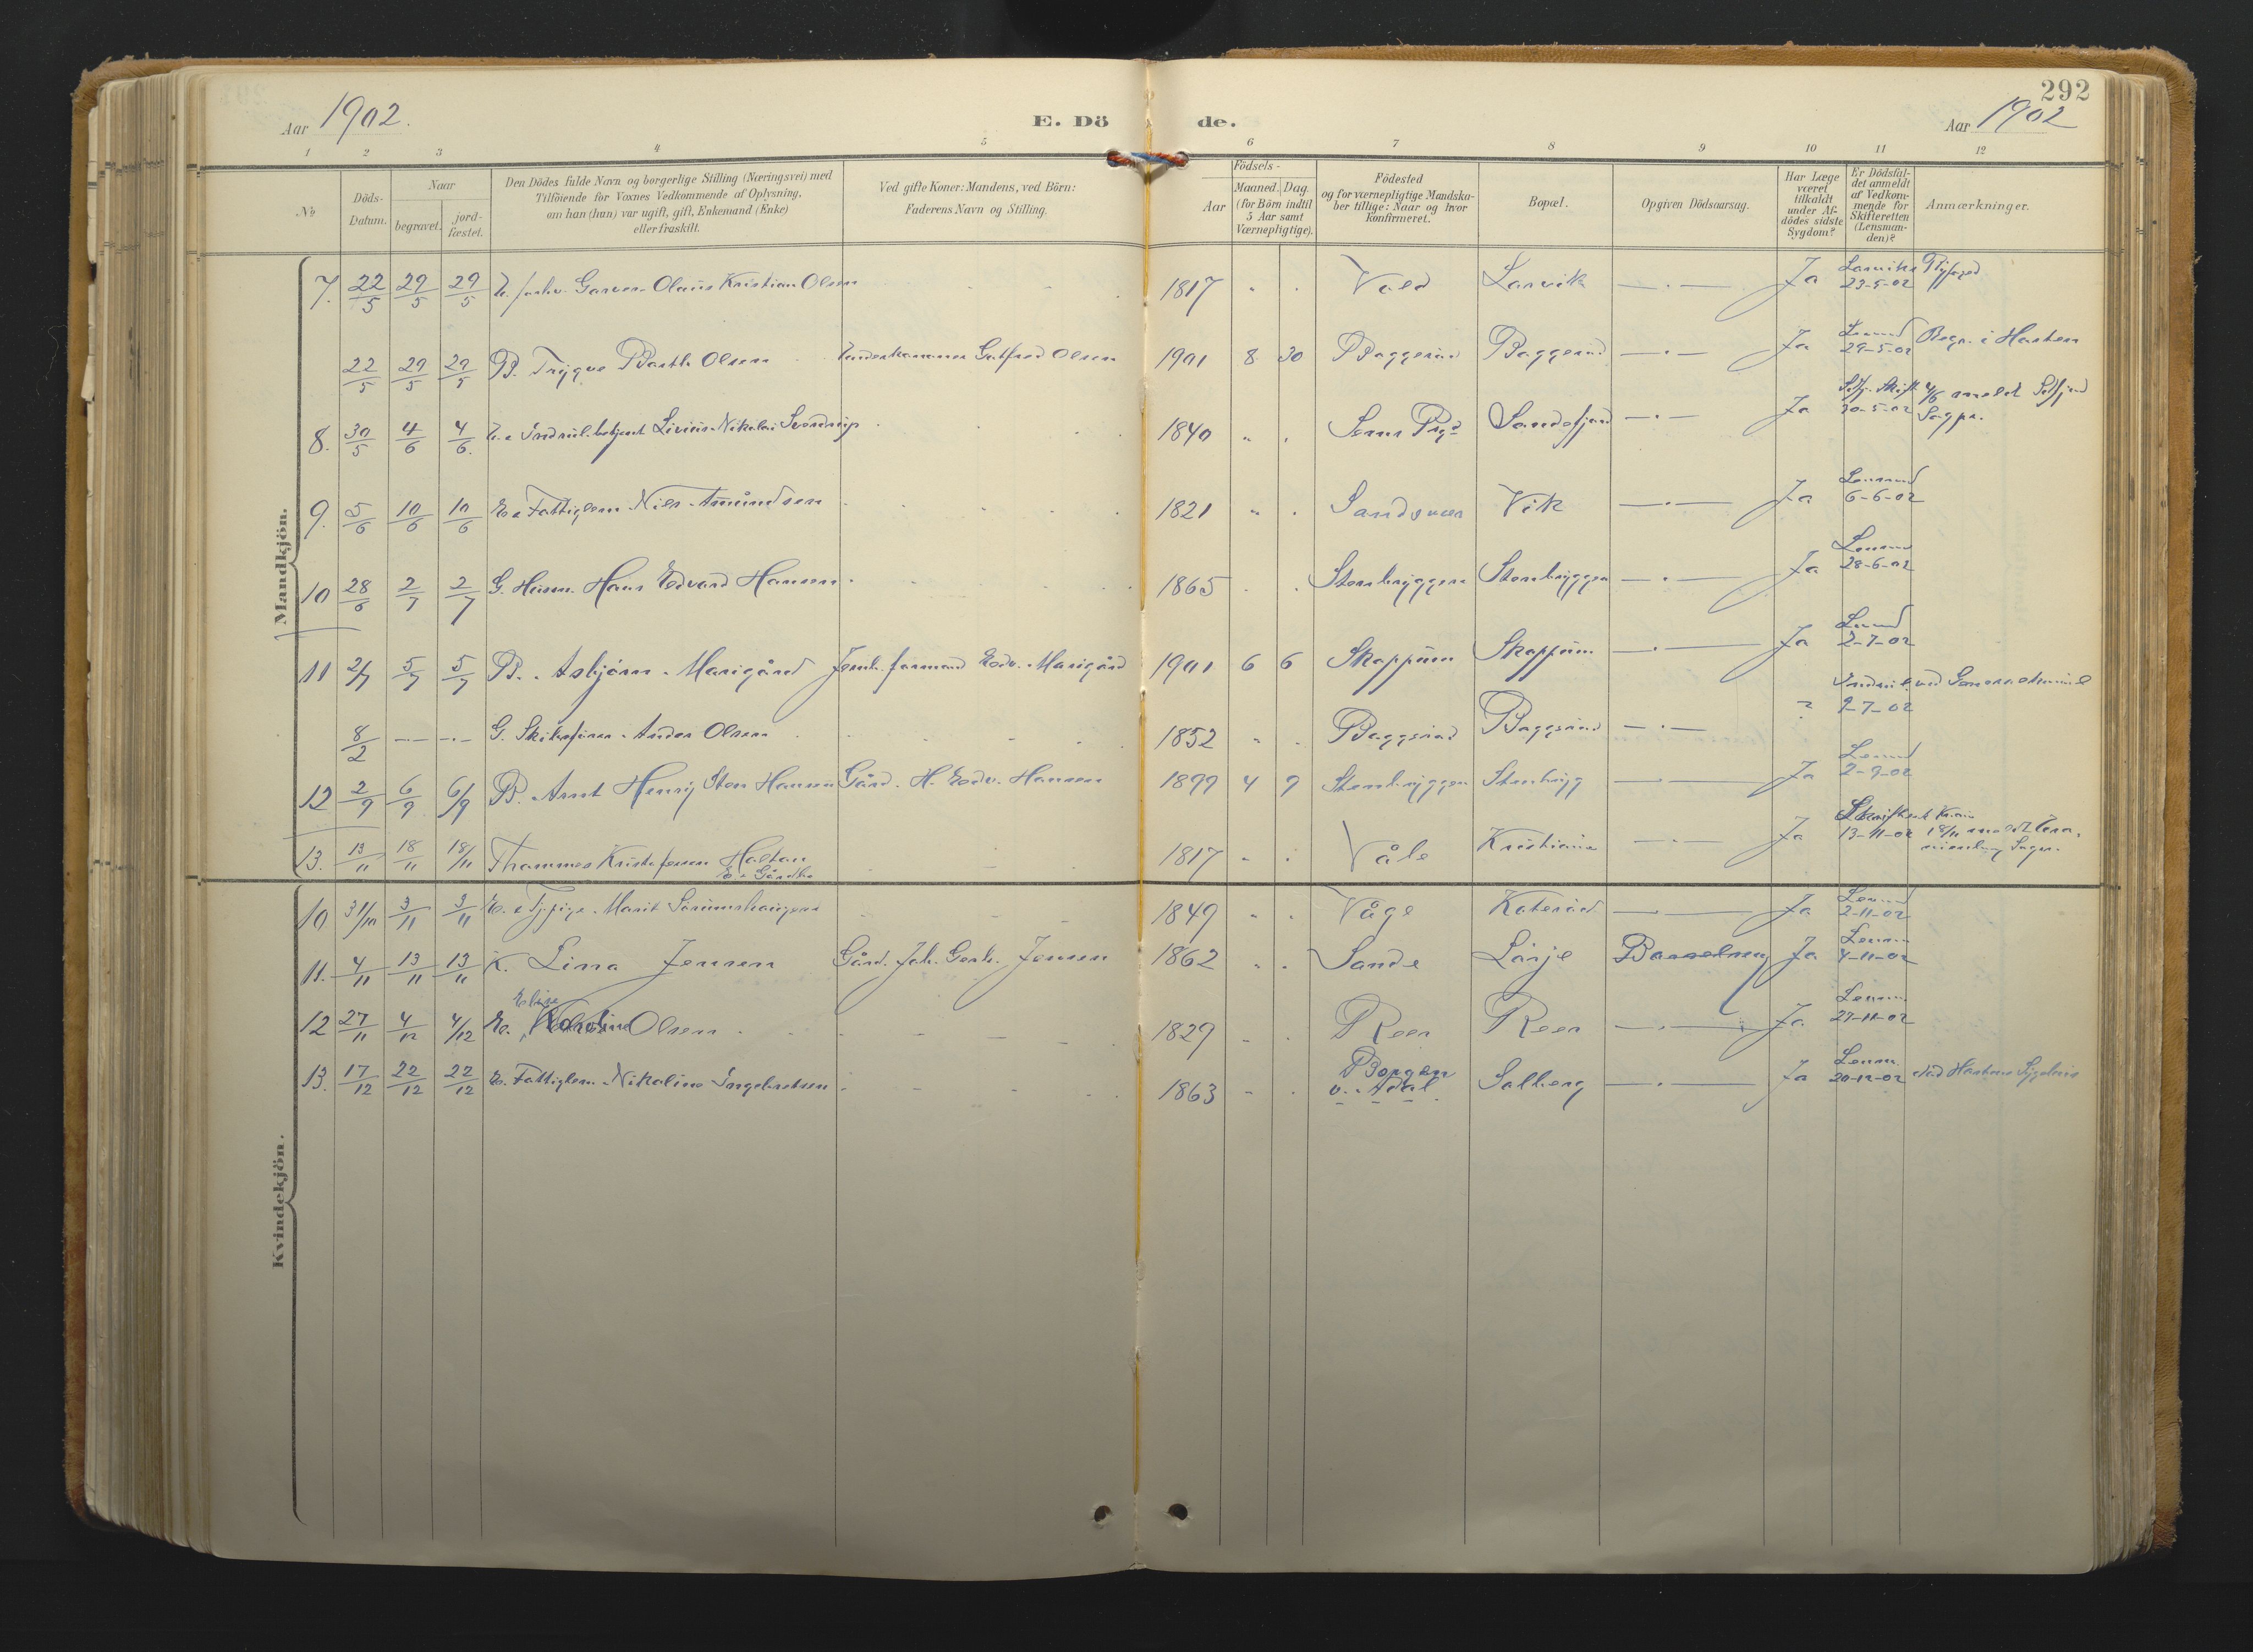 292
Aar 1902.
E. Dö de.
Aar 1902
1 2 3 4 5 6 7 8 9 10 11 12
№
Döds-Datum.
Naar
begravet.
jord-fæstet.
Den Dödes fulde Navn og borgerlige Stilling (Næringsvei) med
Tilföiende for Voxnes Vedkommende af Oplysning,
om han (hun) var ugift, gift, Enkemand (Enke)
eller fraskilt.
Ved gifte Koner: Mandens, ved Börn:
Faderens Navn og Stilling.
Födsels-
Aar
Maaned. Dag.
(for Börn indtil
5 Aar samt
Værnepligtige).
Födested
og for værnepligtige Mandska-
ber tillige: Naar og hvor
konfirmeret.
Bopæl.
Opgiven Dödsaarsag.
Har Læge
været
tilkaldt
under Af-
dödes sidste
Sygdom?
Er Dödsfal-
det anmeldt
af Vedkom-
mende for
Skifteretten
(Lensman-
den)?
Anmærkninger.
Mandkjön.
7. 22/5 29/5 29/5 Garver Olaus Kristian Olsen 1817 Larvik Ja Larviks 23-5-02
22/5 29/5 29/5 B. Trygve Barth Olsen Gutfred Olsen 1901 8 30 Baggerud Baggerud Ja Lensmd 29-5-02 Begr. i Horten
8. 30/5 4/6 4/6 Livius Nikolai Sverdrup 1840 Sandefjord Ja 30-5-02 4/6 meldt
9. 5/6 10/6 10/6 E. Fattiglem Nils Amundsen 1821 Sandsvær Vik Ja Lensmd 6-6-02
10 28/6 2/7 2/7 G. Husm. Hans Edvard Hansen 1865 Stenbryggen Stenbryggen Ja Lensmd 28-6-02
11 2/7 5/7 5/7 B. Asbjørn Marigård Jernb. formand Edv. Marigård 1901 6 6 Skoppum Skoppum Ja Lensmd 2-7-02
8/2 G. Anders Olsen 1852 Baggerud Baggerud ? 2-7-02
12 2/9 6/9 6/9 B. Arnt Henrij Sten Hansen Gård. H. Edv. Hansen 1899 4 9 Stenbryggen Stenbrygg Ja Lensmd 2-9-02
13. 13/11 18/11 18/11 Thammes Kristofersen Holtan 1817 Våle Kristiania Ja 13-11-02 18/11
Kvindekjön.
10 31/10 3/11 3/11 Marit 1849 Våge Katerud Ja Lensmd 2-11-02
11. 4/11 13/11 13/11 K. Lina Jensen Gård. Joh. Gerh. Jensen 1862 Sande Lårje Barselseng Ja Lensm 4-11-02
12 27/11 4/12 4/12 E. Elise Olsen 1829 Reen Reen Ja Lensm 27-11-02
13. 17/12 22/12 22/12 E. Fattiglem. Nikoline Ingebretsen 1863 Borgen Solberg Ja Lensm. 20-12-02 død Hortens Sygehus